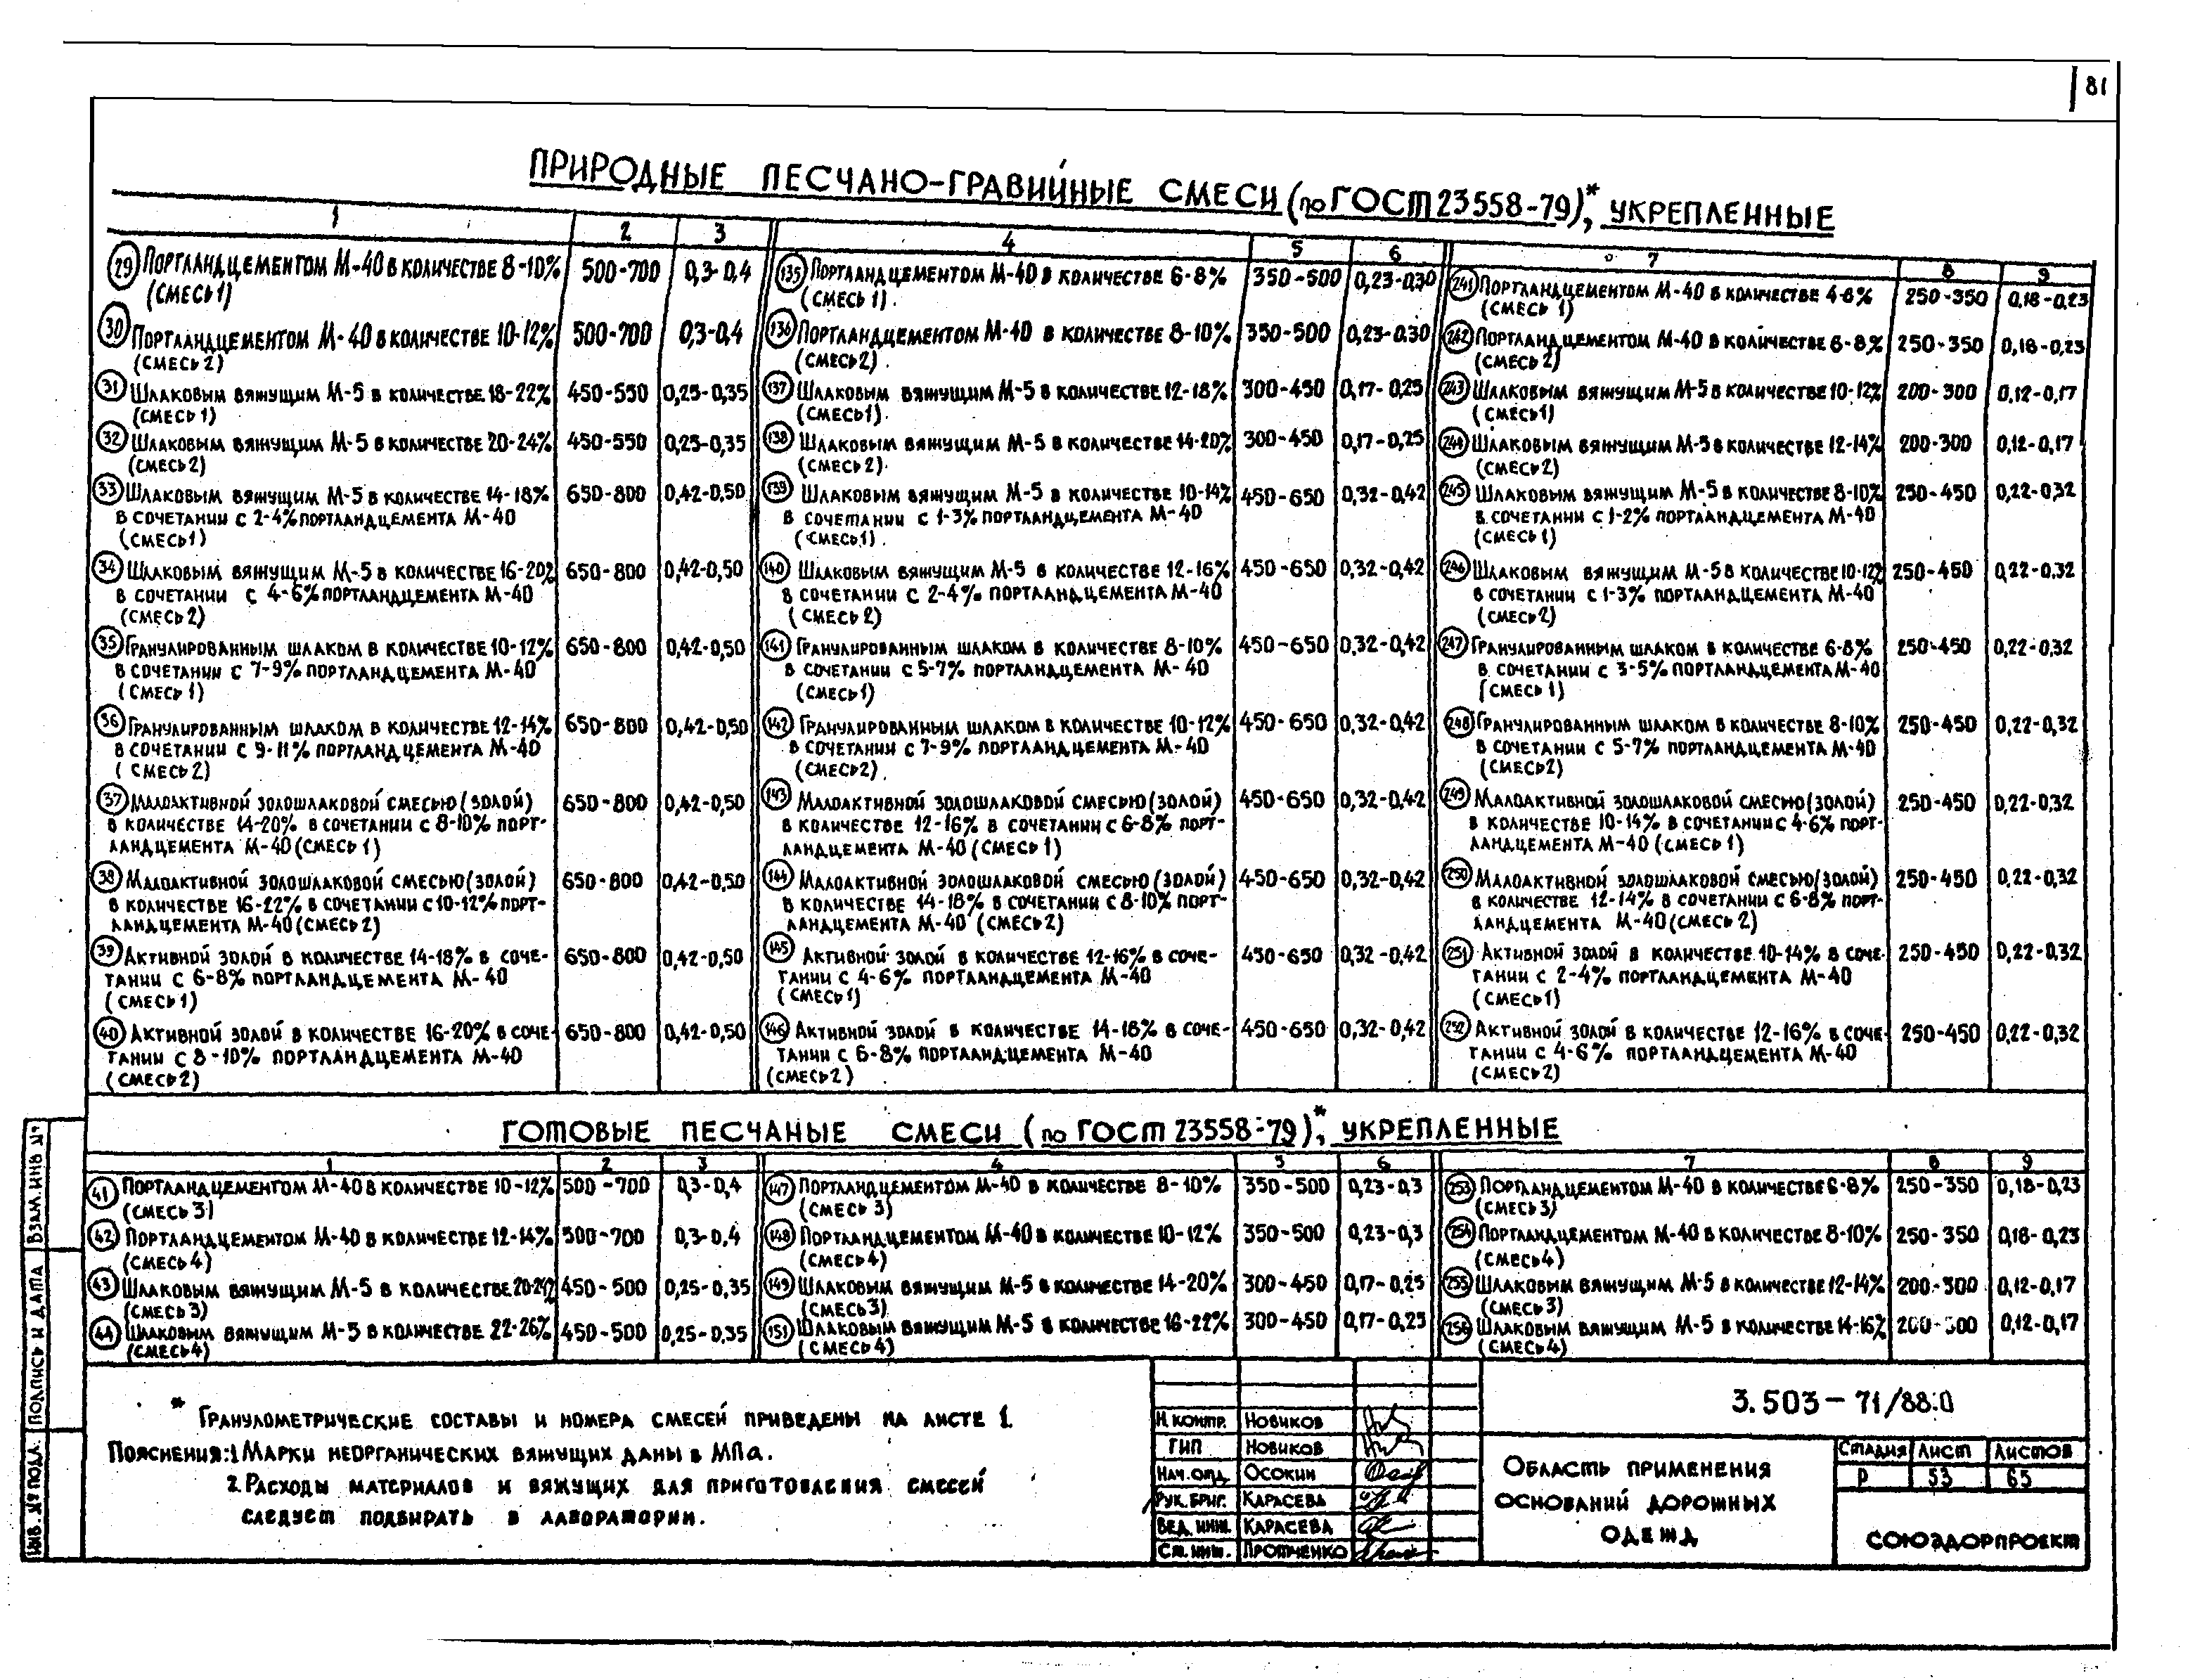 81
ПРИРОДНЫЕ ПЕСЧАНО-ГРАВИЙНЫЕ СМЕСИ (по ГОСТ 23558-79)*, УКРЕПЛЕННЫЕ
1 2 3 4 5 6 7 8 9
29 Портландцементом М-40 в количестве 8-10% 500-700 0,3-0,4
(смесь 1)
135 Портландцементом М-40 в количестве 6-8% 350-500 0,23-0,30
(смесь 1).
241 Портландцементом М-40 в количестве 4-6% 250-350 0,18-0,23
(смесь 1)
30 Портландцементом М-40 в количестве 10-12% 500-700 0,3-0,4
(смесь 2)
136 Портландцементом М-40 в количестве 8-10% 350-500 0,23-0,30
(смесь 2).
242 Портландцементом М-40 в количестве 6-8% 250-350 0,18-0,23
(смесь 2)
31 Шлаковым вяжущим М-5 в количестве 18-22% 450-550 0,25-0,35
(смесь 1)
137 Шлаковым вяжущим М-5 в количестве 12-18% 300-450 0,17-0,25
(смесь 1).
243 Шлаковым вяжущим М-5 в количестве 10-12% 200-300 0,12-0,17
(смесь 1)
32 Шлаковым вяжущим М-5 в количестве 20-24% 450-550 0,25-0,35
(смесь 2)
138 Шлаковым вяжущим М-5 в количестве 14-20% 300-450 0,17-0,25
(смесь 2).
244 Шлаковым вяжущим М-5 в количестве 12-14% 200-300 0,12-0,17
(смесь 2)
33 Шлаковым вяжущим М-5 в количестве 14-18% 650-800 0,42-0,50
в сочетании с 2-4% портландцемента М-40
(смесь 1)
139 Шлаковым вяжущим М-5 в количестве 10-14% 450-650 0,32-0,42
в сочетании с 1-3% портландцемента М-40
(смесь 1).
245 Шлаковым вяжущим М-5 в количестве 8-10% 250-450 0,22-0,32
в сочетании с 1-2% портландцемента М-40
(смесь 1)
34 Шлаковым вяжущим М-5 в количестве 16-20% 650-800 0,42-0,50
в сочетании с 4-6% портландцемента М-40
(смесь 2)
140 Шлаковым вяжущим М-5 в количестве 12-16% 450-650 0,32-0,42
в сочетании с 2-4% портландцемента М-40
(смесь 2)
246 Шлаковым вяжущим М-5 в количестве 10-12% 250-450 0,22-0,32
в сочетании с 1-3% портландцемента М-40
(смесь 2)
35 Гранулированным шлаком в количестве 10-12% 650-800 0,42-0,50
в сочетании с 7-9% портландцемента М-40
(смесь 1)
141 Гранулированным шлаком в количестве 8-10% 450-650 0,32-0,42
в сочетании с 5-7% портландцемента М-40
(смесь 1)
247 Гранулированным шлаком в количестве 6-8% 250-450 0,22-0,32
в сочетании с 3-5% портландцемента М-40
(смесь 1)
36 Гранулированным шлаком в количестве 12-14% 650-800 0,42-0,50
в сочетании с 9-11% портландцемента М-40
(смесь 2)
142 Гранулированным шлаком в количестве 10-12% 450-650 0,32-0,42
в сочетании с 7-9% портландцемента М-40
(смесь 2).
248 Гранулированным шлаком в количестве 8-10% 250-450 0,22-0,32
в сочетании с 5-7% портландцемента М-40
(смесь 2)
37 Малоактивной золошлаковой смесью (золой) 650-800 0,42-0,50
в количестве 14-20% в сочетании с 8-10% порт-
ландцемента М-40 (смесь 1)
143 Малоактивной золошлаковой смесью (золой) 450-650 0,32-0,42
в количестве 12-16% в сочетании с 6-8% порт-
ландцемента М-40 (смесь 1)
249 Малоактивной золошлаковой смесью (золой) 250-450 0,22-0,32
в количестве 10-14% в сочетании с 4-6% порт-
ландцемента М-40 (смесь 1)
38 Малоактивной золошлаковой смесью (золой) 650-800 0,42-0,50
в количестве 16-22% в сочетании с 10-12% порт-
ландцемента М-40 (смесь 2)
144 Малоактивной золошлаковой смесью (золой) 450-650 0,32-0,42
в количестве 14-18% в сочетании с 8-10% порт-
ландцемента М-40 (смесь 2)
250 Малоактивной золошлаковой смесью (золой) 250-450 0,22-0,32
в количестве 12-14% в сочетании с 6-8% порт-
ландцемента М-40 (смесь 2)
39 Активной золой в количестве 14-18% в соче- 650-800 0,42-0,50
тании с 6-8% портландцемента М-40
(смесь 1)
145 Активной золой в количестве 12-16% в соче- 450-650 0,32-0,42
тании с 4-6% портландцемента М-40
(смесь 1)
251 Активной золой в количестве 10-14% в соче- 250-450 0,22-0,32
тании с 2-4% портландцемента М-40
(смесь 1)
40 Активной золой в количестве 16-20% в соче- 650-800 0,42-0,50
тании с 8-10% портландцемента М-40
(смесь 2)
146 Активной золой в количестве 14-18% в соче- 450-650 0,32-0,42
тании с 6-8% портландцемента М-40
(смесь 2)
252 Активной золой в количестве 12-16% в соче- 250-450 0,22-0,32
тании с 4-6% портландцемента М-40
(смесь 2)
ГОТОВЫЕ ПЕСЧАНЫЕ СМЕСИ (по ГОСТ 23558-79)*, УКРЕПЛЕННЫЕ
1 2 3 4 5 6 7 8 9
41 Портландцементом М-40 в количестве 10-12% 500-700 0,3-0,4
(смесь 3)
147 Портландцементом М-40 в количестве 8-10% 350-500 0,23-0,3
(смесь 3)
253 Портландцементом М-40 в количестве 6-8% 250-350 0,18-0,23
(смесь 3)
42 Портландцементом М-40 в количестве 12-14% 500-700 0,3-0,4
(смесь 4)
148 Портландцементом М-40 в количестве 10-12% 350-500 0,23-0,3
(смесь 4)
254 Портландцементом М-40 в количестве 8-10% 250-350 0,18-0,23
(смесь 4)
43 Шлаковым вяжущим М-5 в количестве 20-24% 450-500 0,25-0,35
(смесь 3)
149 Шлаковым вяжущим М-5 в количестве 14-20% 300-450 0,17-0,25
(смесь 3)
255 Шлаковым вяжущим М-5 в количестве 12-14% 200-300 0,12-0,17
(смесь 3)
44 Шлаковым вяжущим М-5 в количестве 22-26% 450-500 0,25-0,35
(смесь 4)
151 Шлаковым вяжущим М-5 в количестве 16-22% 300-450 0,17-0,25
(смесь 4)
256 Шлаковым вяжущим М-5 в количестве 14-16% 200-300 0,12-0,17
(смесь 4)
* Гранулометрические составы и номера смесей приведены на листе 1.
Пояснения: 1 Марки неорганических вяжущих даны в МПа.
2. Расходы материалов и вяжущих для приготовления смесей
следует подбирать в лаборатории.
3.503-71/88.0
Н. контр. Новиков
ГИП Новиков
Нач. отд. Осокин
Рук. бриг. Карасева
Вед. инж. Карасева
Ст. инж. Протченко
Область применения
оснований дорожных
одежд
Стадия Лист Листов
Р 53 65
СОЮЗДОРПРОЕКТ
Инв. № подл. Подпись и дата Взам. инв №